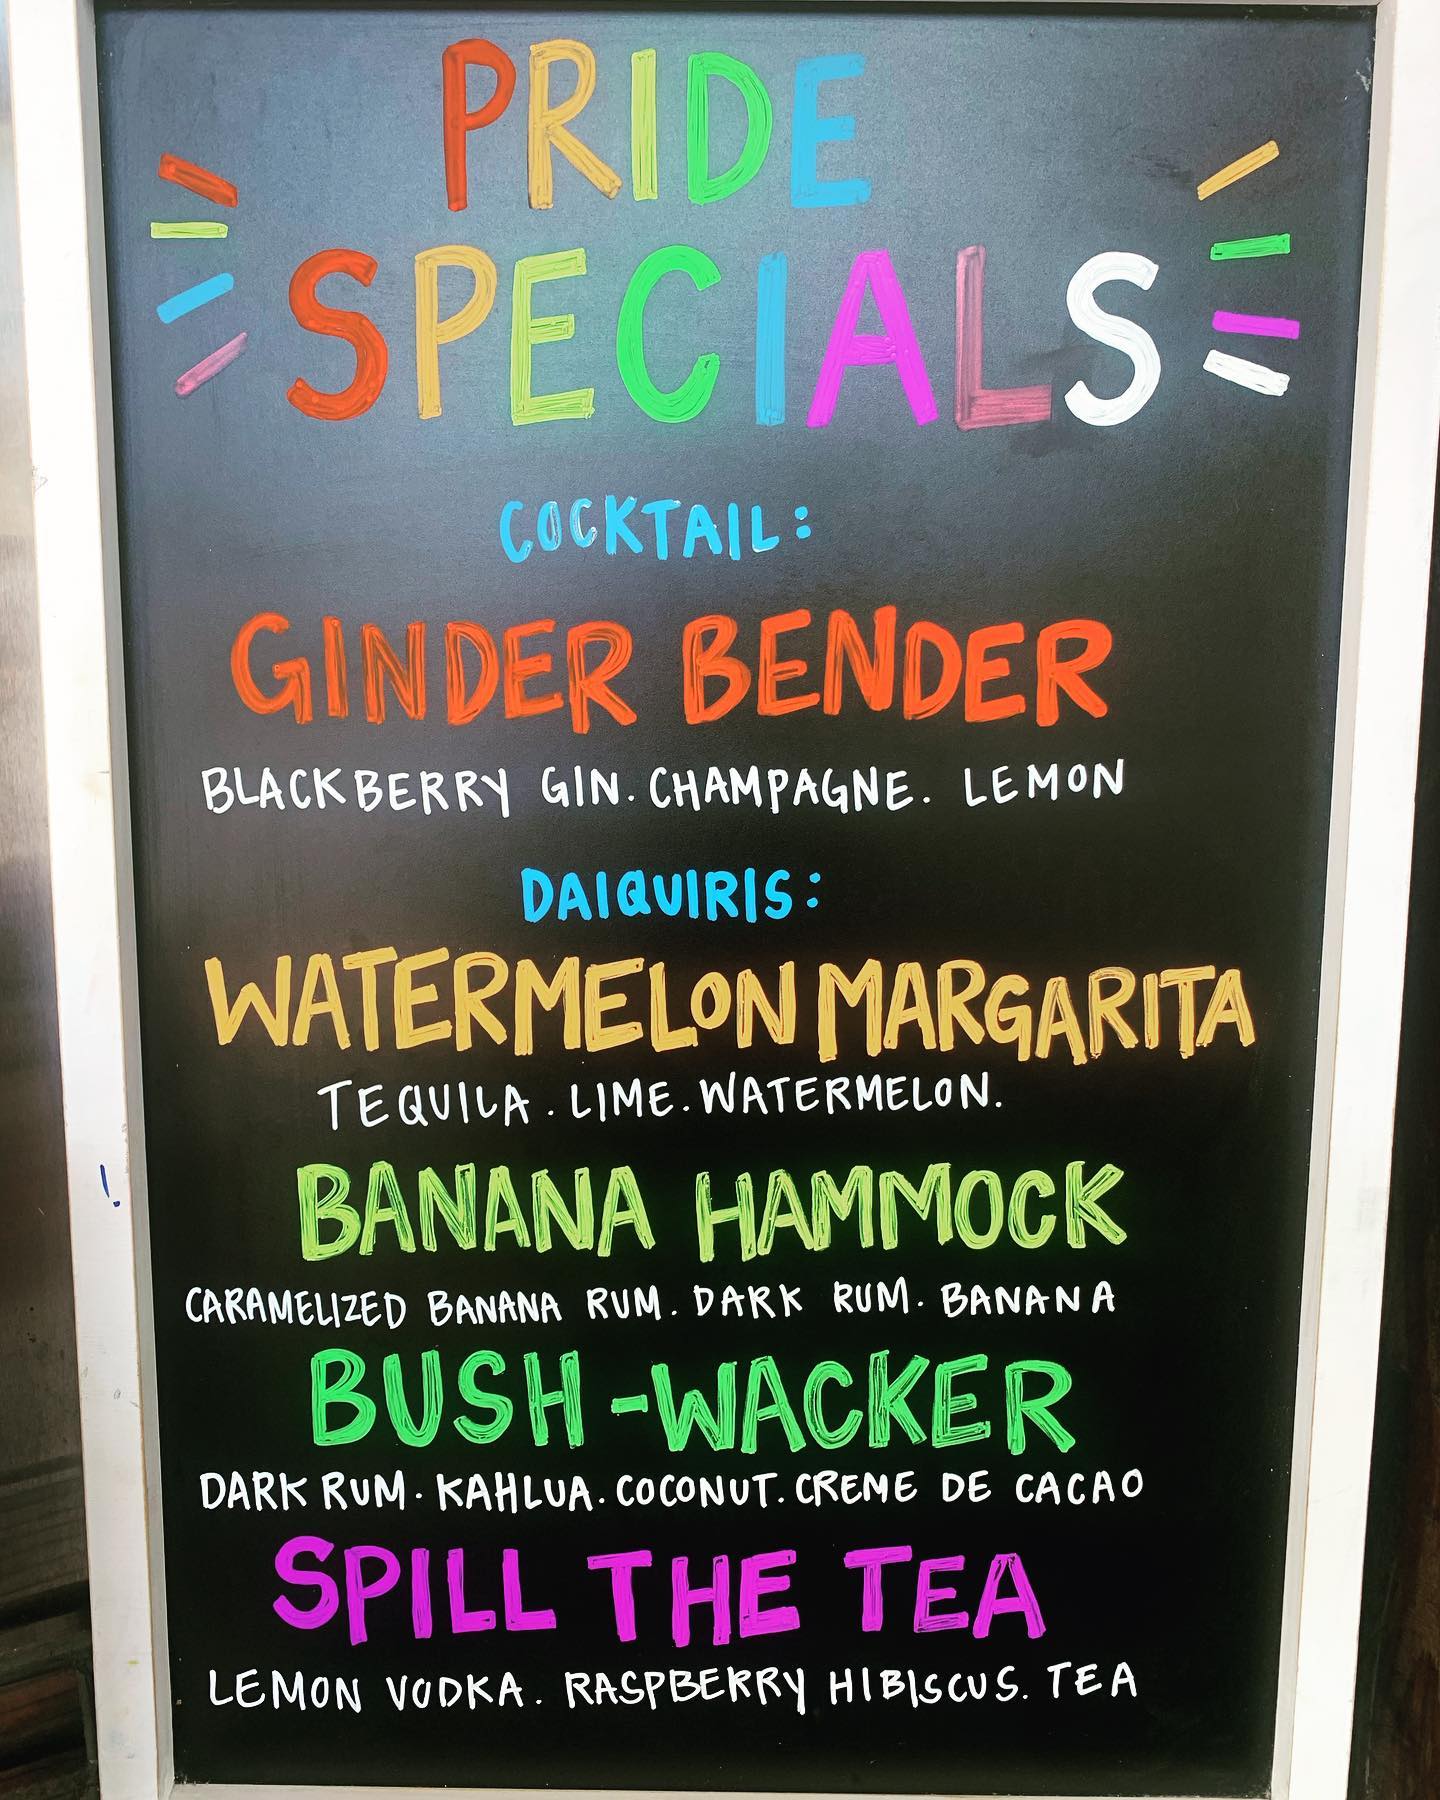 PRIDE
SPECIALS
COCKTAIL:
GINDER BENDER
BLACKBERRY GIN. CHAMPAGNE. LEMON
DAIQUIRIS:
WATERMELON MARGARITA
TEQUILA. LIME. WATERMELON.
BANANA HAMMOCK
CARAMELIZED BANANA RUM. DARK RUM. BANANA
BUSH-WACKER
DARK RUM. KAHLUA. COCONUT. CREME DE CACAO
SPILL THE TEA
LEMON VODKA. RASPBERRY HIBISCUS. TEA